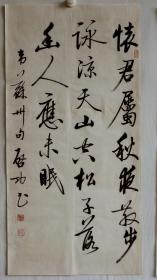 懷君屬秋夜散步
詠涼天山空松子落
幽人應未眠
韋蘇州句 啟功書